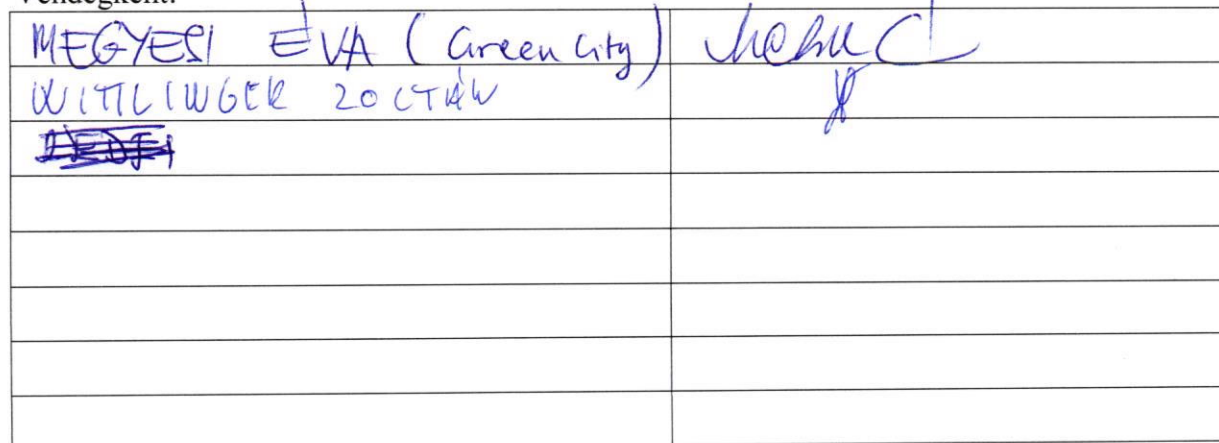 Vendégként:
MEGYESI ÉVA (Green City)
WITTLINGER ZOLTÁN